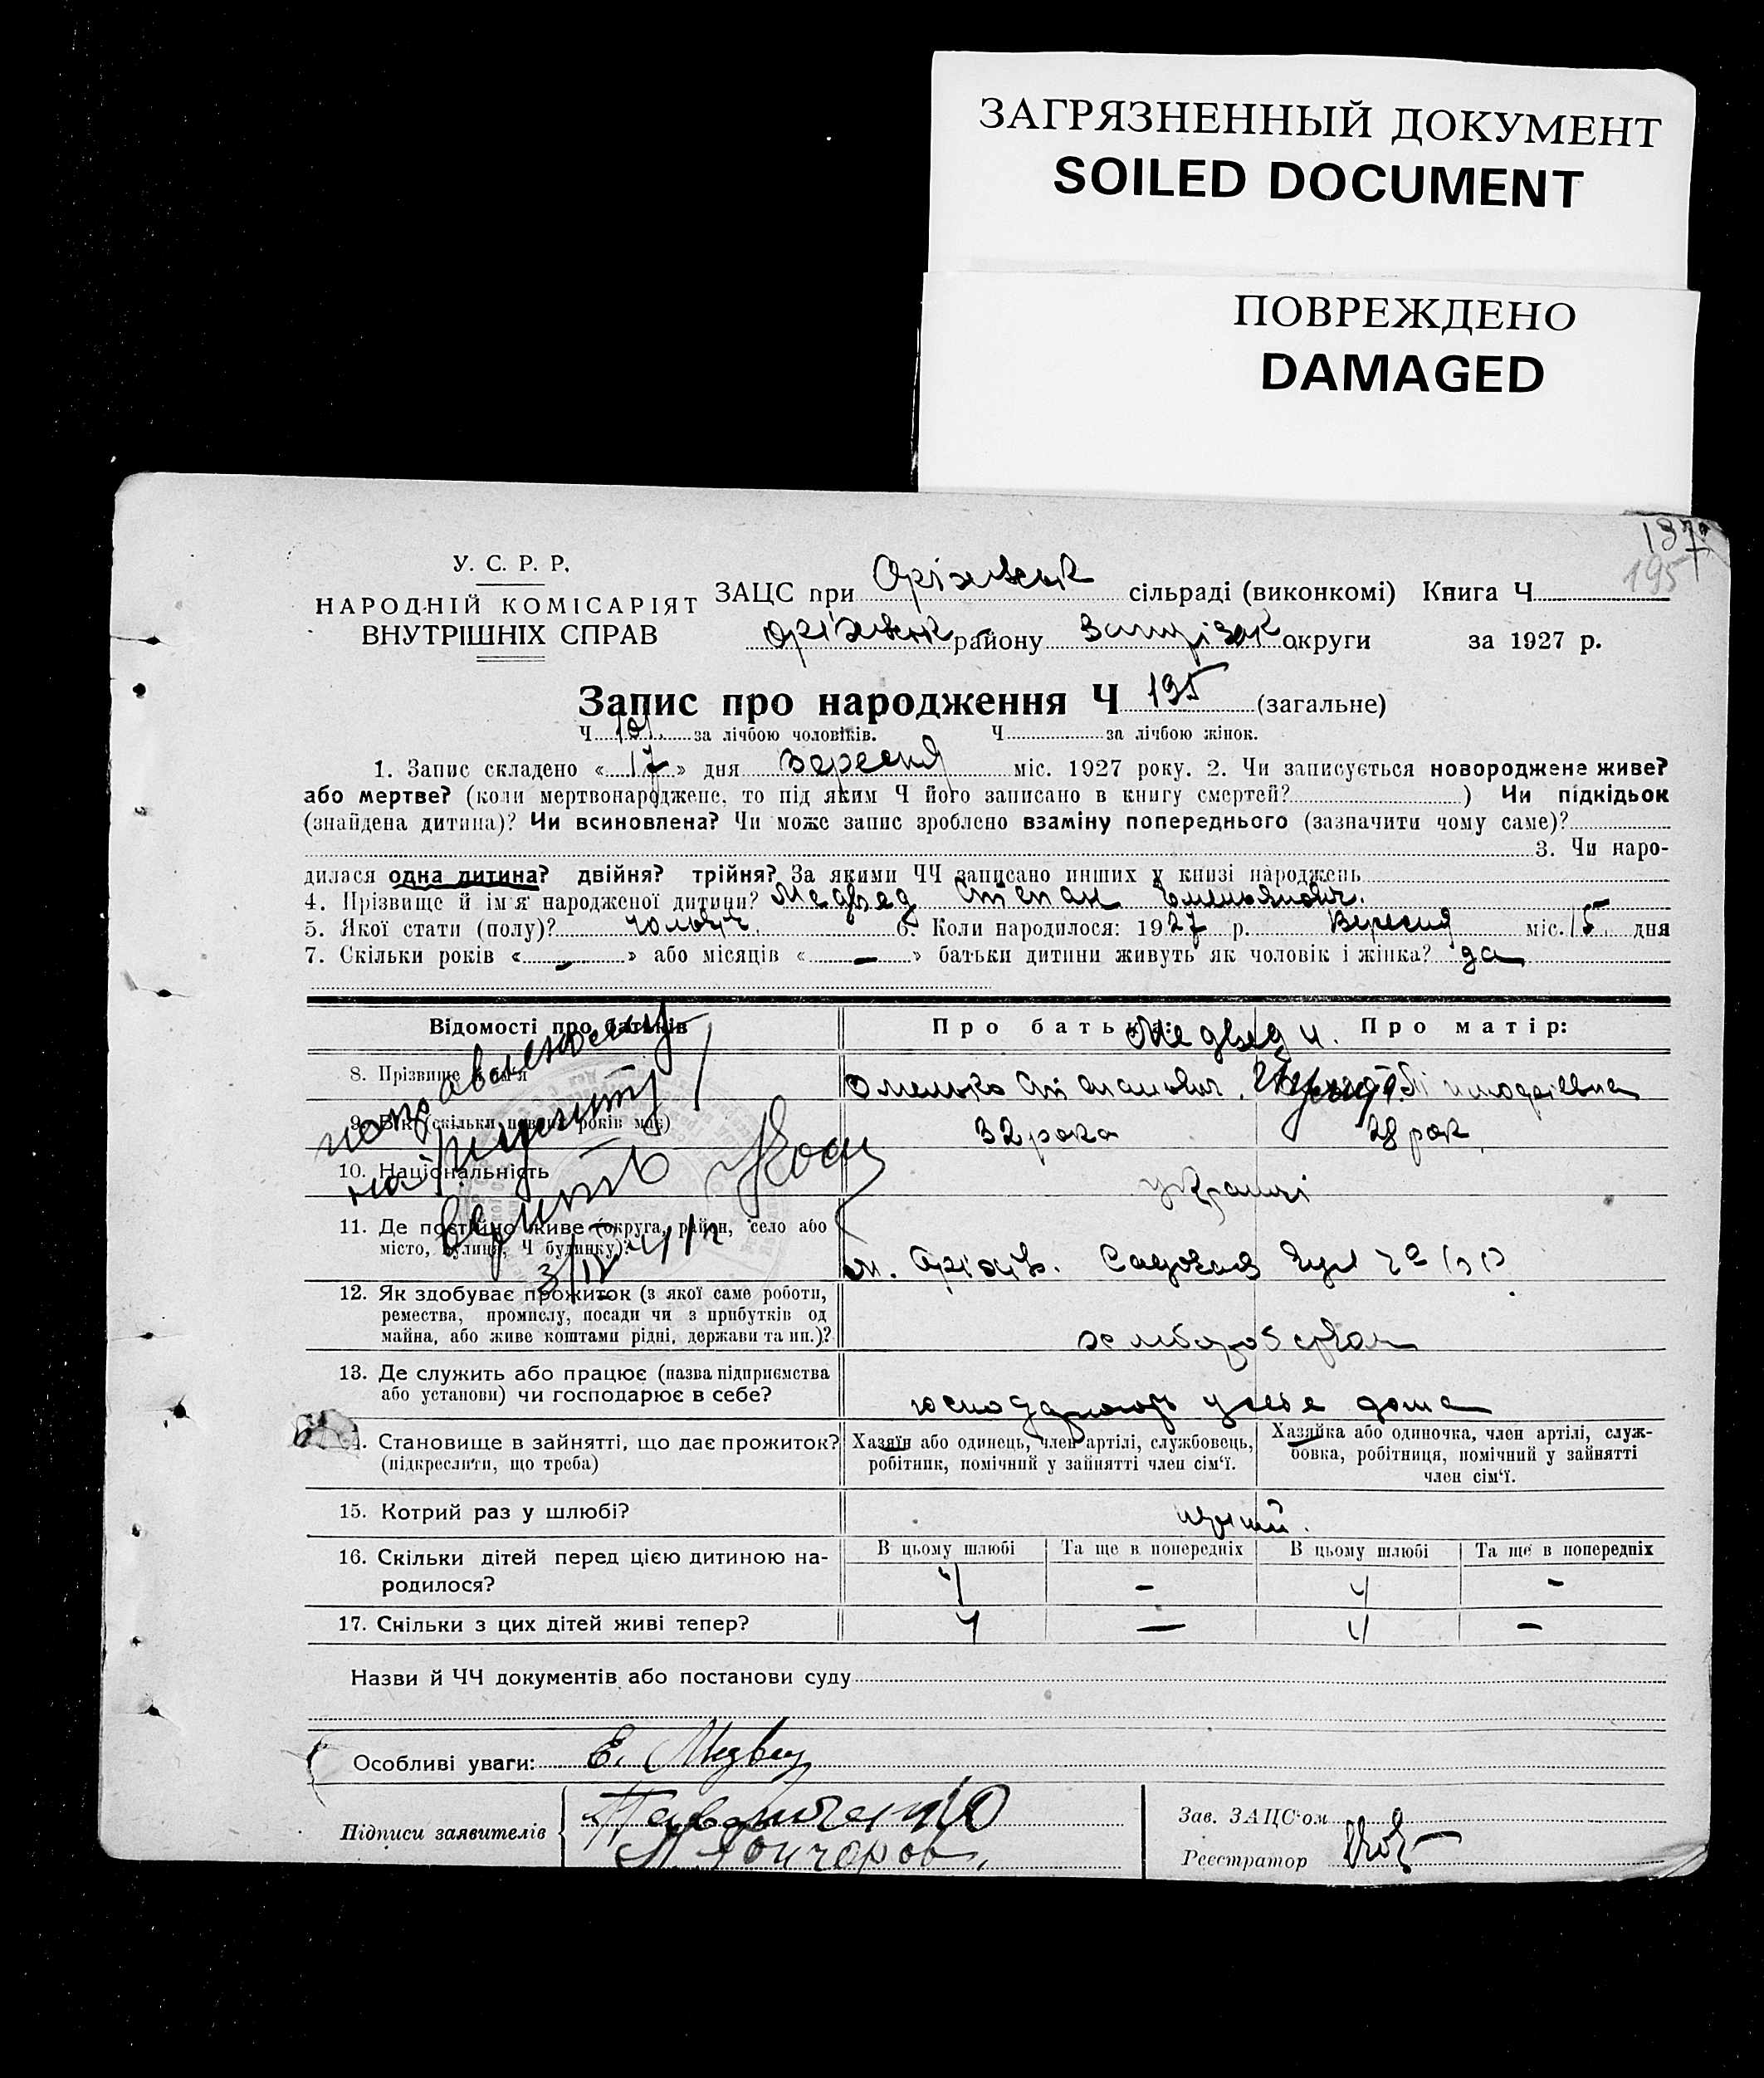 ЗАГРЯЗНЕННЫЙ ДОКУМЕНТ
SOILED DOCUMENT
ПОВРЕЖДЕНО
DAMAGED
137
195
У. С. Р. Р.
НАРОДНІЙ КОМІСАРІЯТ
ВНУТРІШНІХ СПРАВ
ЗАЦС при Оріхівськ сільраді (виконкомі) Книга Ч
району округи за 1927 р.
Запис про народження Ч 195 (загальне)
Ч 101 за лічбою чоловіків. Ч за лічбою жінок.
1. Запис складено « 17 » дня Вересня міс. 1927 року. 2. Чи записується новороджене живе?
або мертве? (коли мертвонароджене, то під яким Ч його записано в книгу смертей? ) Чи підкідьок
(знайдена дитина)? Чи всиновлена? Чи може запис зроблено взаміну попереднього (зазначити чому саме)?
3. Чи наро-
дилася одна дитина? двійня? трійня? За якими ЧЧ записано инших у книзі народжень
4. Прізвище й ім'я народженої дитини? Медвед Степан Омельянович.
5. Якої стати (полу)? 6. Коли народилося: 1927 р. Вересня міс. 15 дня
7. Скільки років « – » або місяців « – » батьки дитини живуть як чоловік і жінка? да
Відомості про батьків Про батька: Про матір:
Медведи.
8. Прізвище й ім'я Омелько Степанович.
9. Вік (скільки повних років має) 32 рока 28 рок
10. Національність українці
11. Де постійно живе (округа, район, село або
місто, вулиця, Ч будинку)? м. Оріхів. Садовая
12. Як здобуває прожиток (з якої саме роботи,
ремества, промислу, посади чи з прибутків од
майна, або живе коштами рідні, держави та ин.)?
13. Де служить або працює (назва підприємства
або установи) чи господарює в себе? господарюють у себе дома
14. Становище в зайнятті, що дає прожиток?
(підкреслити, що треба)
Хазяїн або одинець, член артілі, службовець,
робітник, помічний у зайнятті член сім'ї.
Хазяйка або одиночка, член артілі, служ-
бовка, робітниця, помічний у зайнятті
член сім'ї.
15. Котрий раз у шлюбі? перший.
В цьому шлюбі Та ще в попередніх В цьому шлюбі Та ще в попередніх
16. Скільки дітей перед цією дитиною на-
родилося? 4 – 4 –
17. Скільки з цих дітей живі тепер? 4 – 4 –
Назви й ЧЧ документів або постанови суду
Особливі уваги: Е. Медвед
Підписи заявителів
Гончаров.
Зав. ЗАЦС'ом
Реєстратор